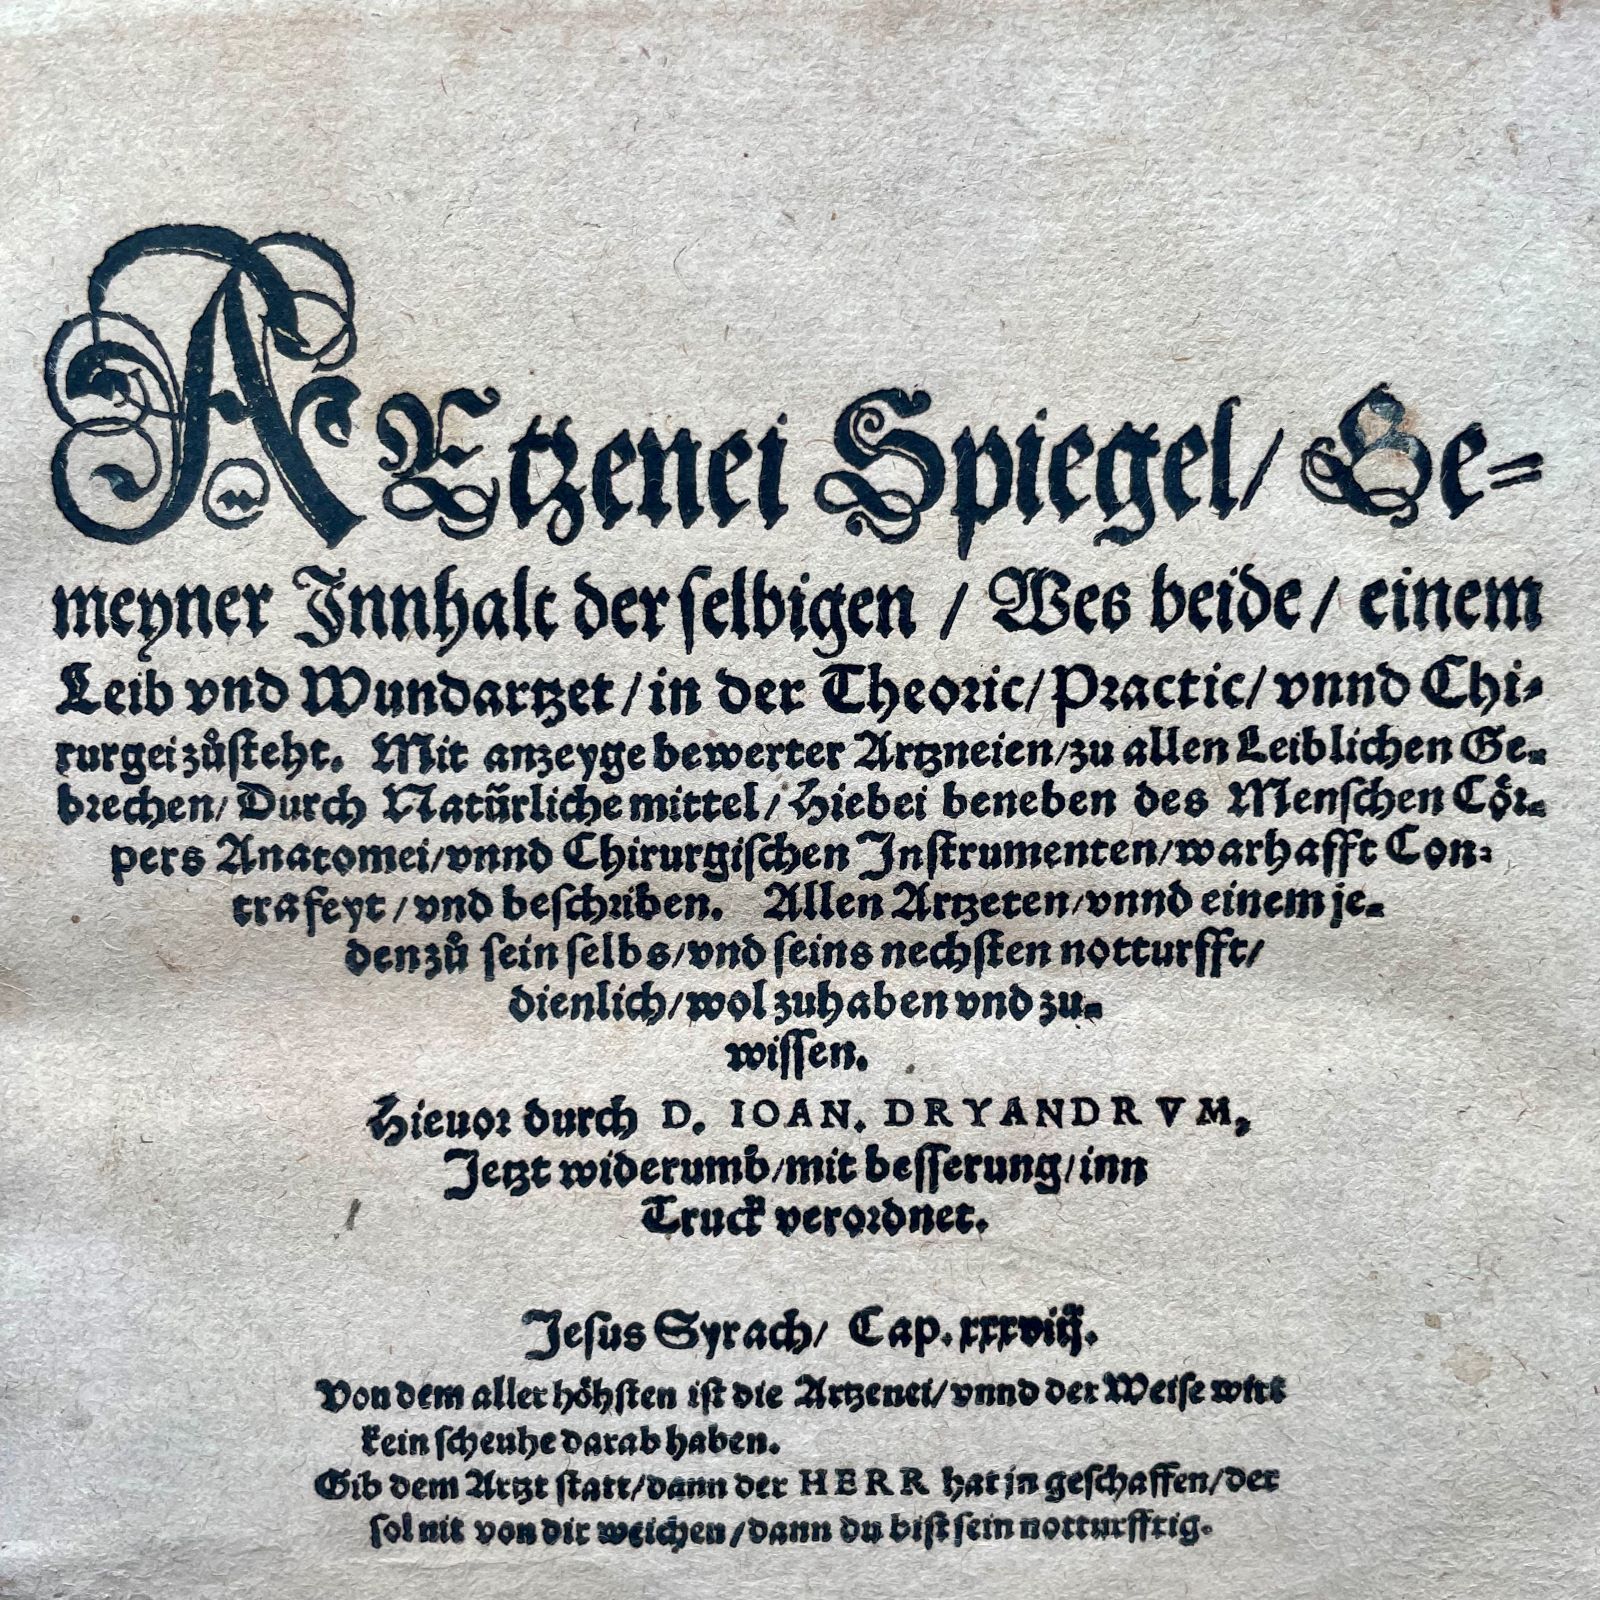 ARtzenei Spiegel/ Ge=
meyner Innhalt derselbigen / Wes beide/ einem
Leib vnd Wundartzet/in der Theoric/Practic/ vnnd Chi-
rurgei zůsteht. Mit anzeyge bewerter Artzneien/zu allen Leiblichen Ge-
brechen/ Durch Natürliche mittel/ Hiebei beneben des Menschen Cör-
pers Anatomei/vnnd Chirurgischen Instrumenten/warhafft Con-
trafeyt /vnd beschriben. Allen Artzeten/vnnd einem je-
den zů sein selbs/vnd seins nechsten notturfft/
dienlich/wol zuhaben vnd zu-
wissen.
Hieuor durch D. IOAN. DRYANDRVM,
Jetzt widerumb/mit besserung/inn
Truck verordnet.
Jesus Syrach/ Cap. xxxviij.
Von dem aller höhsten ist die Artzenei/vnnd der Weise wirt
kein scheuhe darab haben.
Gib dem Artzt statt/dann der HERR hat jn geschaffen/der
sol nit von dir weichen /dann du bist sein notturfftig.